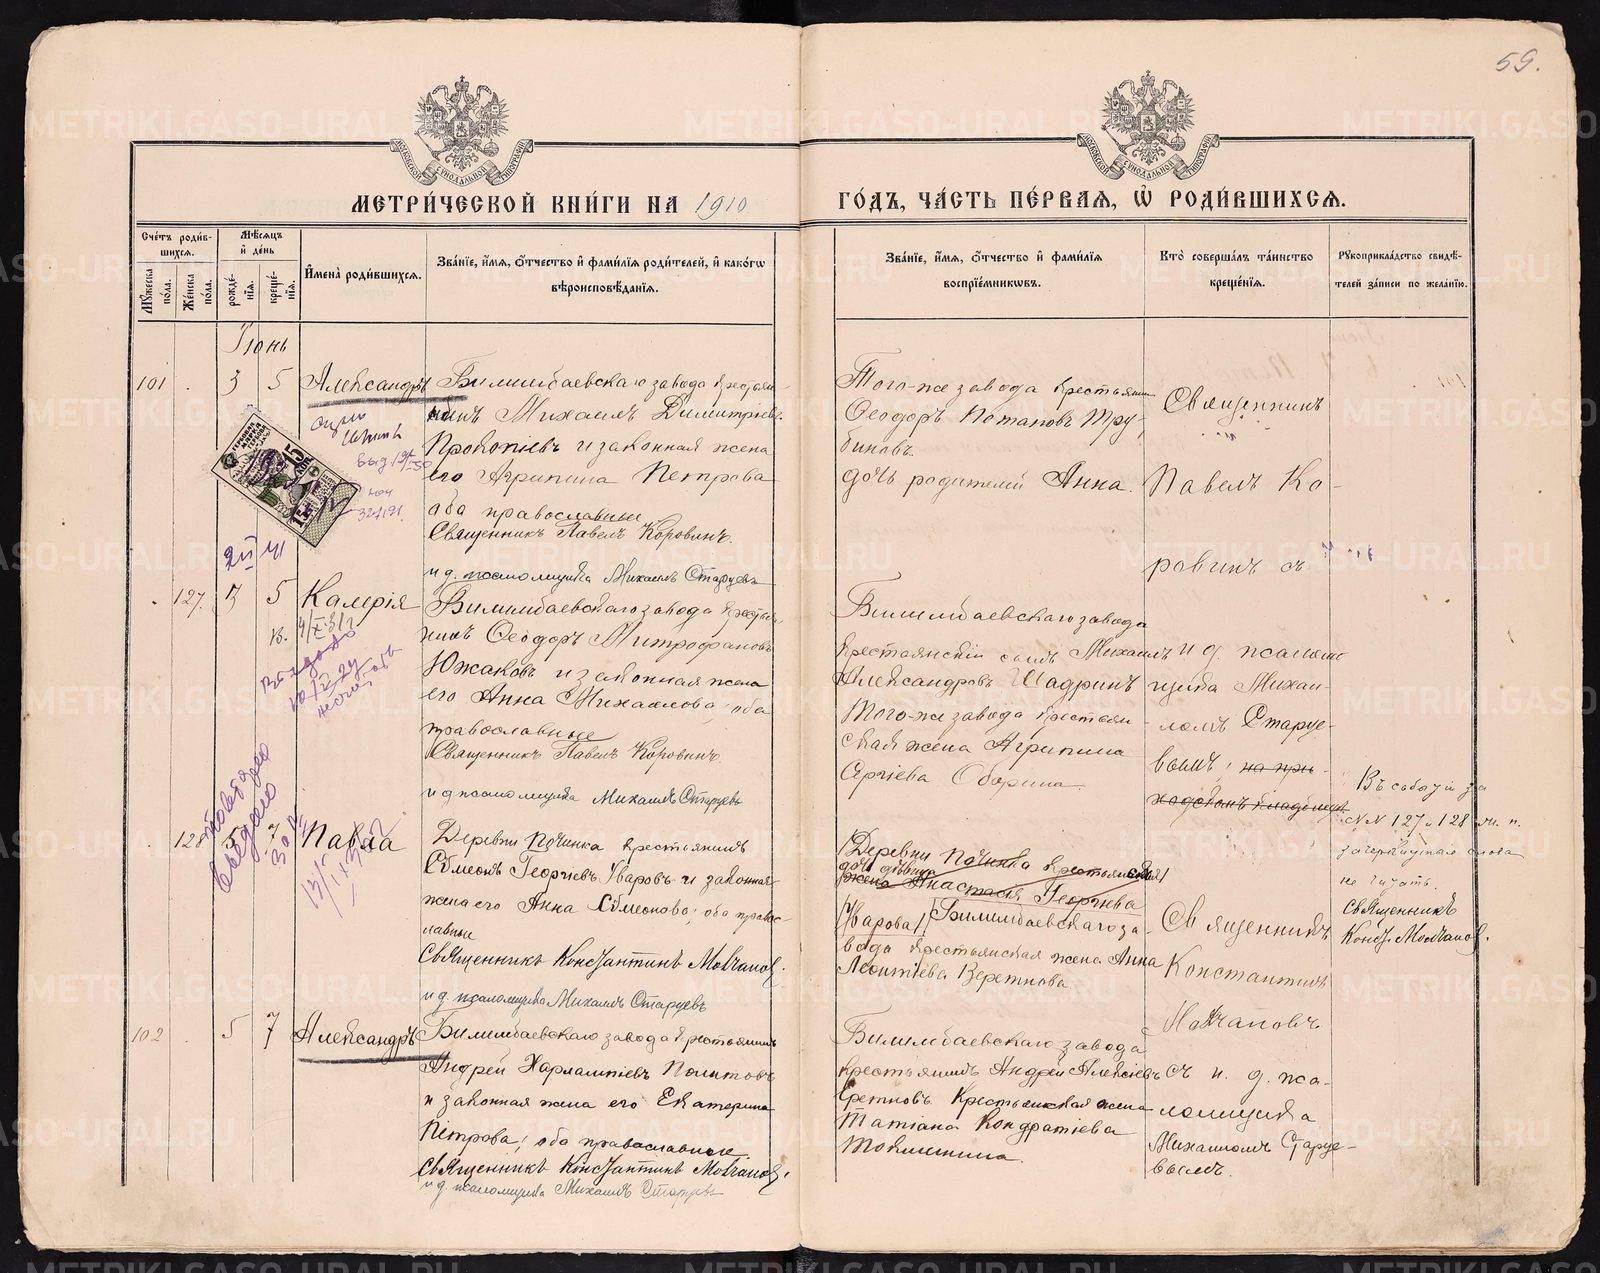 59.
МОСКОВСКОЙ СѴНОДАЛЬНОЙ ТИПОГРАФІИ
МОСКОВСКОЙ СѴНОДАЛЬНОЙ ТИПОГРАФІИ
МЕТРИ́ЧЕСКОЙ КНИ́ГИ НА 1910
ГО́ДЪ, ЧА́СТЬ ПЕ́РВАѦ, Ѡ҆ РОДИ́ВШИХСѦ.
Сче́тъ роди́в-
шихсѧ.
Мꙋ́жеска по́ла.
Же́нска по́ла.
Мѣ́сѧцъ
и҆ де́нь
рожде́-
нїѧ.
креще́-
нїѧ.
И҆мена̀ роди́вшихсѧ.
Зва́нїе, и҆́мѧ, ѻ҆́тчество и҆ фами́лїѧ роди́телей, и҆ како́гѡ
вѣроисповѣ́данїѧ.
Зва́нїе, и҆́мѧ, ѻ҆́тчество и҆ фами́лїѧ
воспрїе́мникѡвъ.
Кто̀ соверша́лъ та́инство
креще́нїѧ.
Рꙋкоприкла́дство свидѣ́-
телей за́писи по жела́нїю.
Іюнь
101 3 5 Александръ
Билимбаевскаго завода крестья-
нинъ Михаилъ Димитріевъ
Прокопіевъ и законная жена
его Агрипина Петрова
оба православные
Священникъ Павелъ Коровинъ.
и д. псаломщика Михаилъ Старцевъ
Того-же завода крестьянинъ
Ѳеодоръ Потаповъ Тру-
биновъ.
дочь родителей Анна.
Священникъ
Павелъ Ко-
ровинъ съ
и д. псалом-
щика Михаи-
ломъ Старце-
вымъ, на при-
15 КОП.
127. 3 5 Калерія
Билимбаевскаго завода кресть-
нинъ Ѳеодоръ Митрофановъ
Южаковъ и законная жена
его Анна Михаилова, оба
православные
Священникъ Павелъ Коровинъ.
и д псаломщика Михаилъ Старцевъ
Билимбаевскаго завода
крестьянскій сынъ Михаилъ
Александровъ Шадринъ
Того-же завода крестьян-
ская жена Агрипина
Сергіева Оборина.
Въ событіи за
№№ 127 и 128 м. п.
зачеркнутая слова
не читать.
Священникъ
Конст. Молчанов.
128 5 7 Павла
Деревни Починка крестьянинъ
Сѵмеонъ Георгіевъ Уваровъ и законная
жена его Анна Сѵмеонова, оба право-
славные
Священникъ Константинъ Молчанов.
и д. псаломщика Михаилъ Старцевъ
Деревни Починка крестьянская
дочь дѣвица
жена Анастасія Георгіева
(Уварова) Билимбаевскаго за-
вода крестьянская жена Анна
Леонтіева Веретнова.
Священникъ
Константинъ
Молчановъ
съ и. д. пса-
ломщика
Михаиломъ Старце-
вымъ.
102 5 7 Александръ
Билимбаевскаго завода крестьянинъ
Андрей Харлампіевъ Политовъ
и законная жена его Екатерина
Петрова, оба православные.
Священникъ Константинъ Молчанов.
и д. псаломщика Михаилъ Старцевъ
Билимбаевскаго завода
крестьянинъ Андрей Алексіевъ
Крестьянская жена
Татіана Кондратіева
METRIKI.GASO-URAL.RU